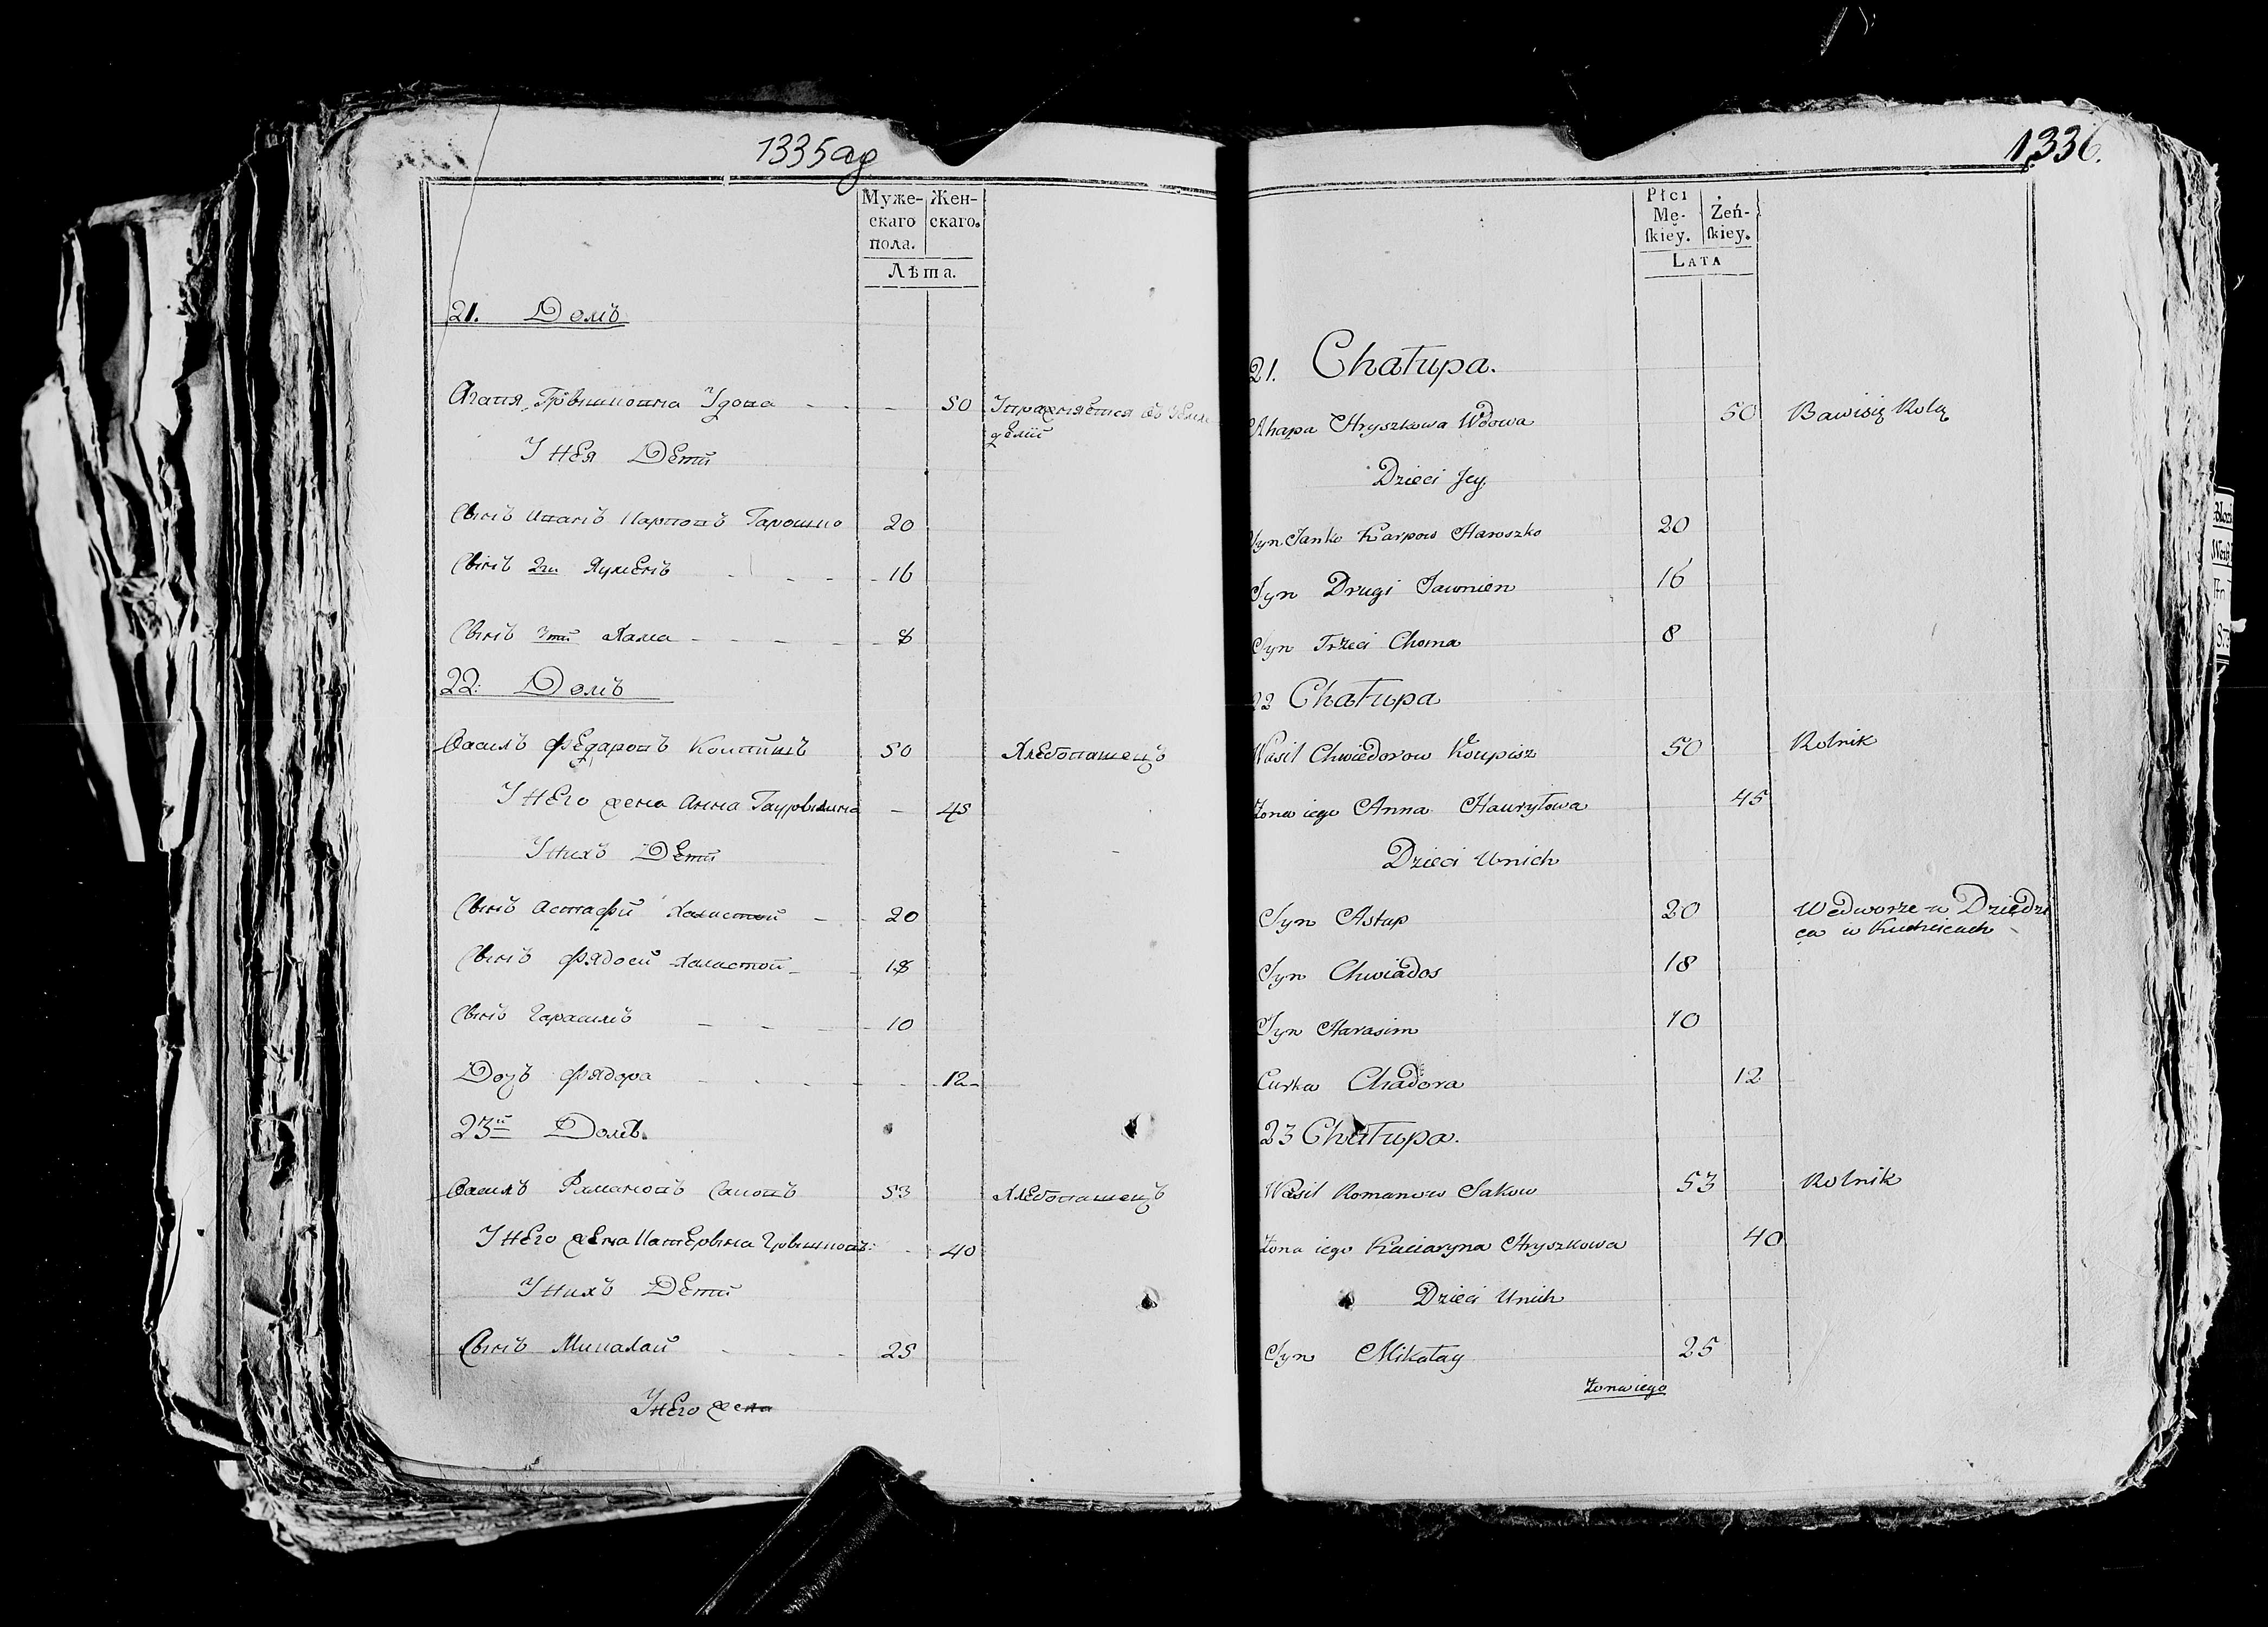 1335 ад
Муже- Жен-
скаго скаго.
пола.
Лѣта.
21. Домъ
Агапя Грышкова Удова 50 Упражняется въ Земле
делїи
У нея Дети
Сынъ Иванъ Карповъ Гарошко 20
Сынъ 2й Ауменъ 16
Сынъ 3тий Хама 8
22. Домъ
Василь Федаровъ Коупишъ 50 Хлебопашецъ
У него жена Анна Гаурылина 45
У нихъ Дети
Сынъ Астафи Халастой 20
Сынъ Фядоси Халастой 18
Сынъ Гарасимъ 10
Дочъ Фядора 12
23й Домъ.
Василь Рамановъ Саковъ 53 Хлебопашецъ
У него жена Катерына Грышков: 40
У нихъ Дети
Сынъ Микалай 25
У него жена
1336.
Płci
Mę- Żeń-
skiey. skiey.
LATA
21. Chałupa.
Ahapa Hryszkowa Wdowa 50 Bawisię Rolą
Dzieci Jey
Syn Janko Karpow Haroszko 20
Syn Drugi Jaumien 16
Syn Trzeci Choma 8
22 Chałupa
Wasil Chwiedorow Koupisz 50 Rolnik
Żona iego Anna Hauryłowa 45
Dzieci Unich
Syn Astap 20 Wedworze u Dziedzi
ca w Kuchcicach
Syn Chwiados 18
Syn Harasim 10
Curka Chadora 12
23 Chałupa.
Wasil Romanow Sakow 53 Rolnik
Żona iego Kaciaryna Hryszkowa 40
Dzieci Unich
Syn Mikołay 25
Żona iego